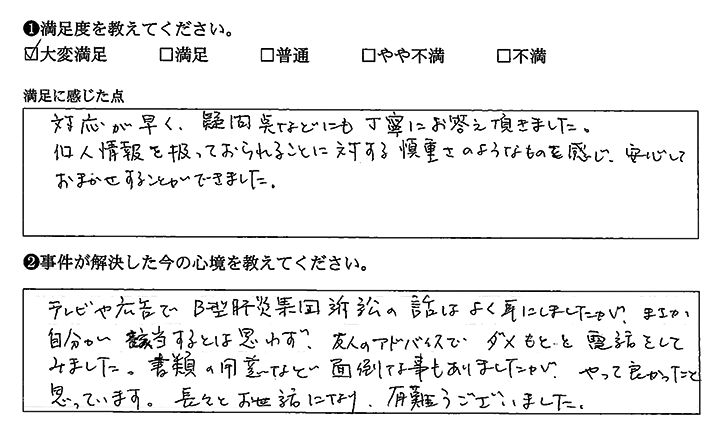 ❶満足度を教えてください。
☑大変満足 □満足 □普通 □やや不満 □不満
満足に感じた点
対応が早く、疑問点などにも丁寧にお答え頂きました。
個人情報を扱っておられることに対する慎重さのようなものを感じ、安心して
おまかせすることができました。
❷事件が解決した今の心境を教えてください。
テレビや広告でB型肝炎集団訴訟の話はよく耳にしましたが、まさか
自分が該当するとは思わず、友人のアドバイスでダメもとと電話をして
みました。書類の用意など面倒な事もありましたが、やって良かったと
思っています。長々とお世話になり、有難うございました。